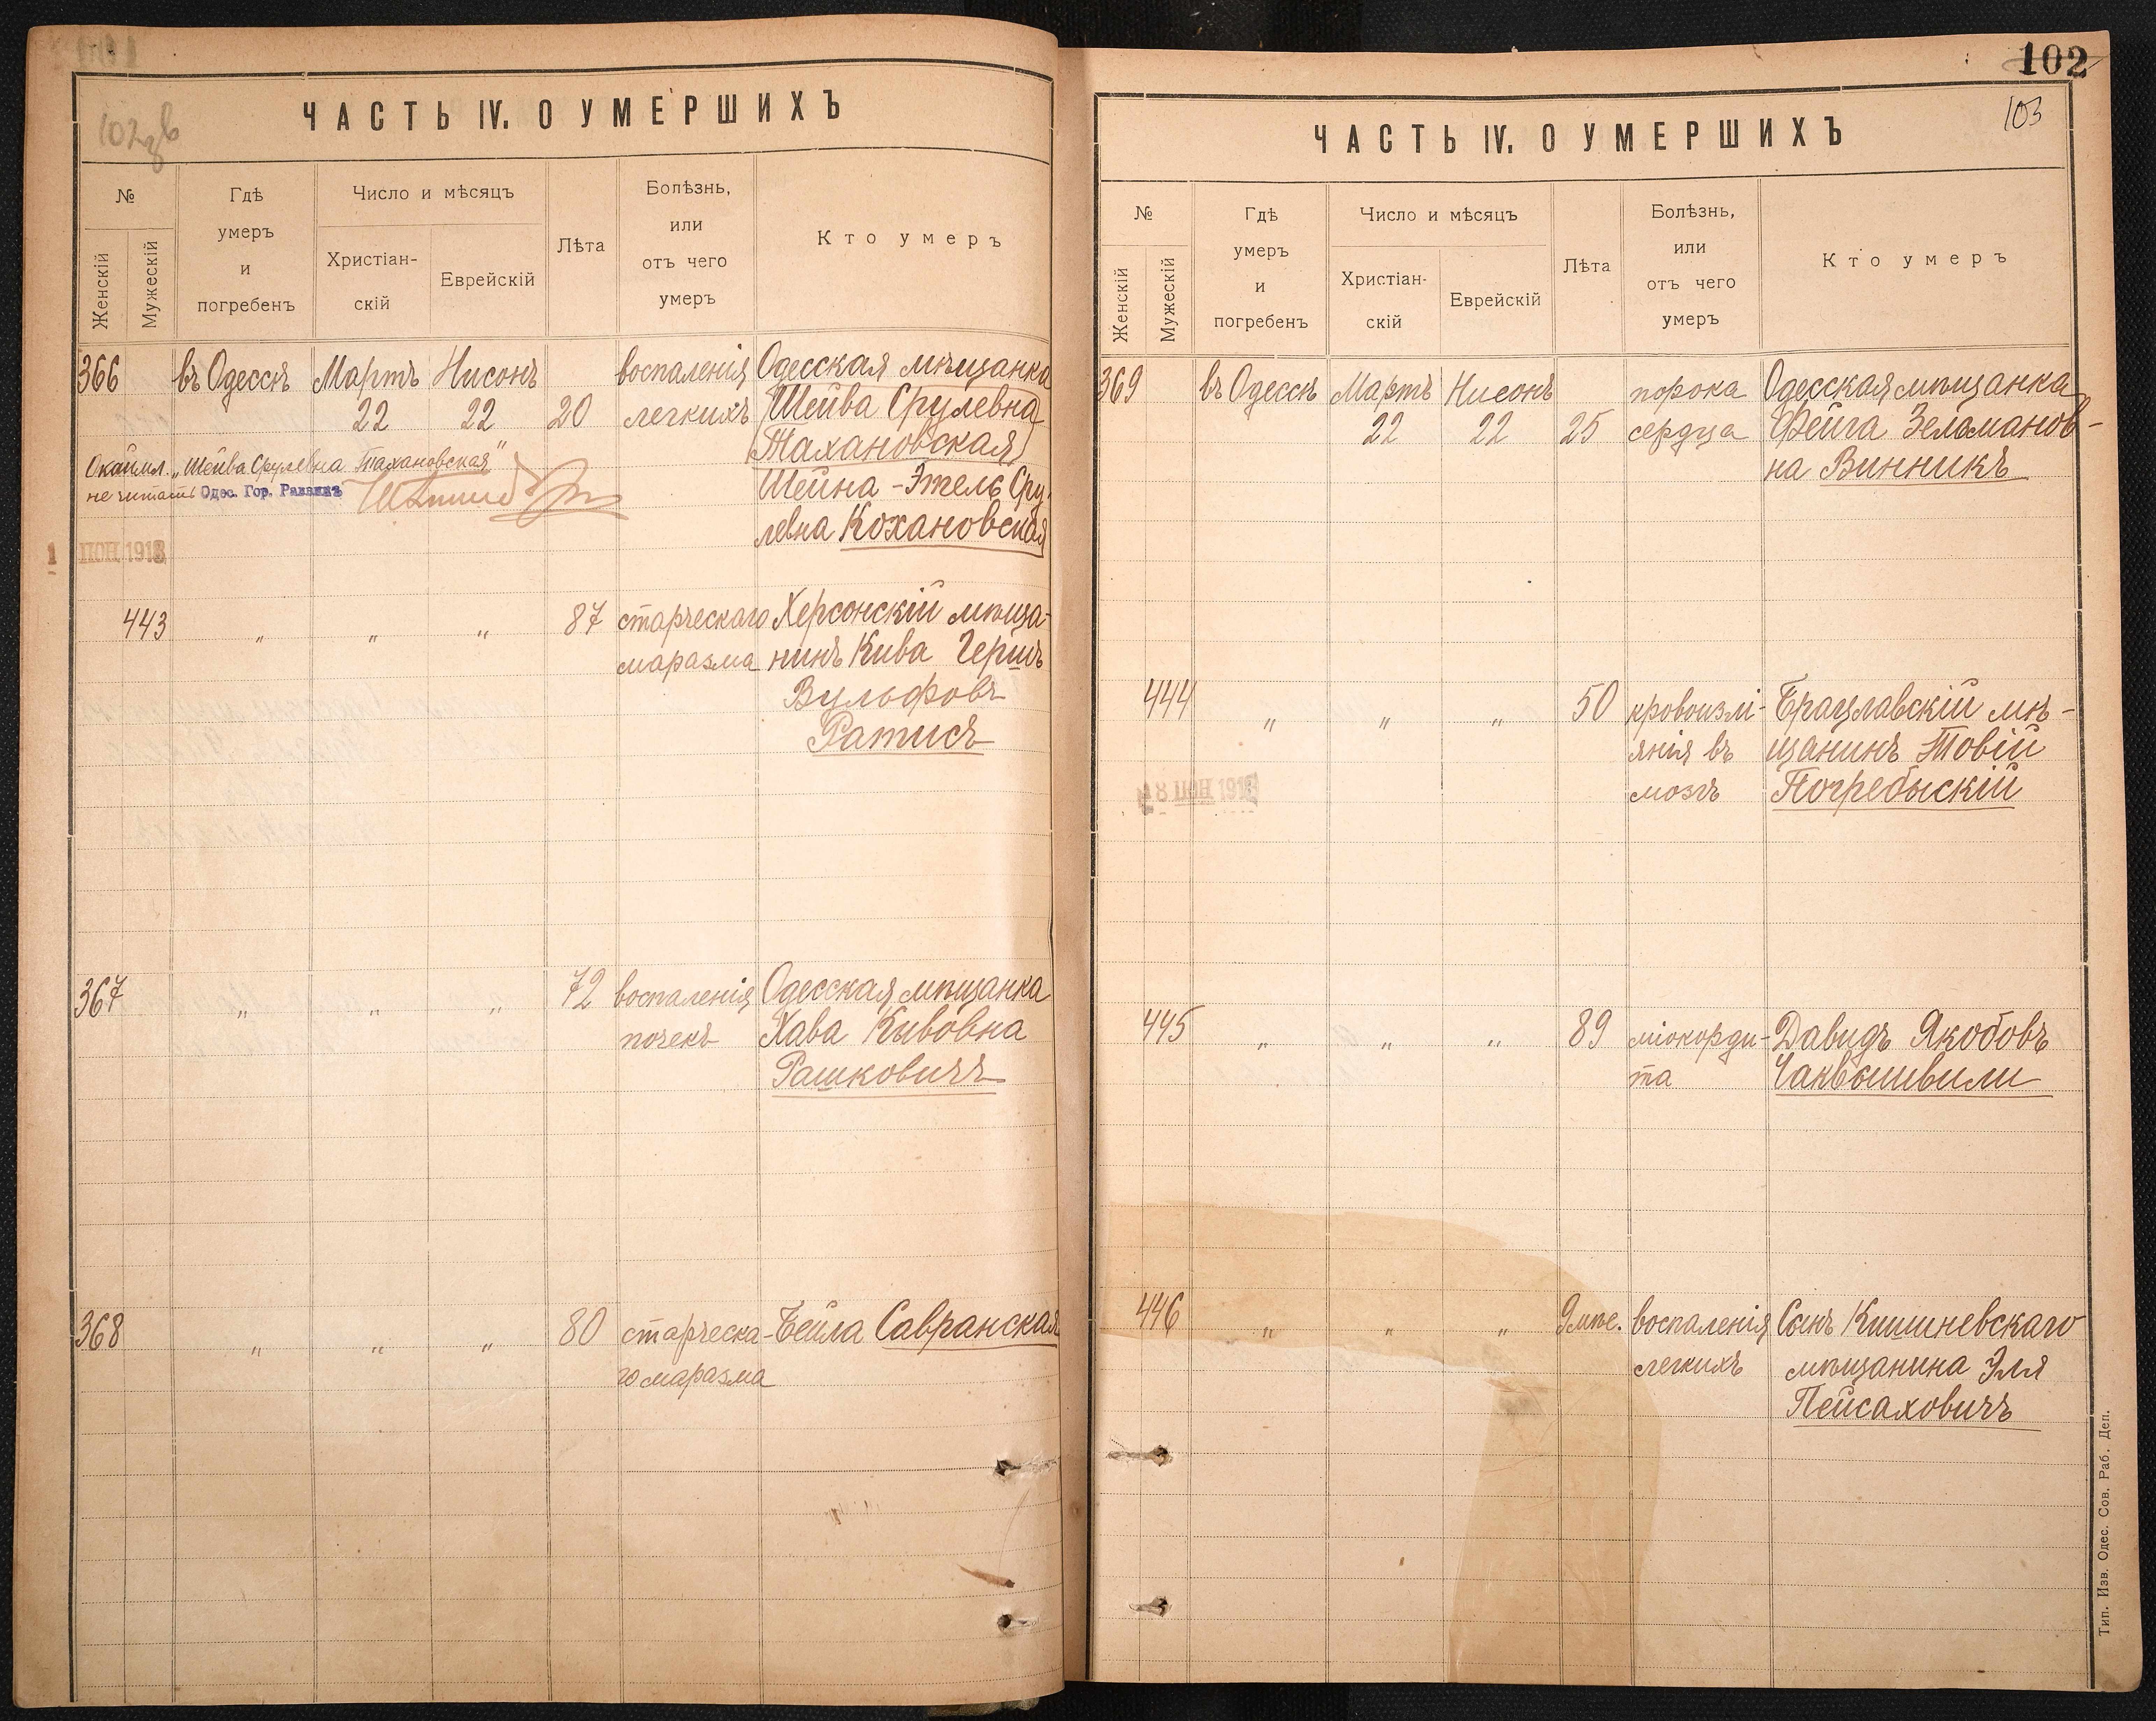 ЧАСТЬ IV. О УМЕРШИХЪ
№
Женскій
Мужескій
Гдѣ
умеръ
и
погребенъ
Число и мѣсяцъ
Христіан-
скій
Еврейскій
Лѣта
Болѣзнь,
или
отъ чего
умеръ
Кто умеръ
366 въ Одессѣ Мартъ Нисонъ воспаленія Одесская мѣщанка
22 22 20 легкихъ Шейва Срулевна
Тахановская
Окаймл. „Шейва Срулевна Тахановская"
не читать Одес. Гор. Раввинъ
Шейна-Этель Сру-
левна Кохановская
1 ІЮН 1918
443 " " " 87 старческаго Херсонскій мѣща-
маразма нинъ Кива Гершъ
Вульфовъ
Ратисъ
367 " " " 72 воспаленія Одесская мѣщанка
почекъ Хава Кивовна
Рашковичъ
368 " " " 80 старческа- Бейла Савранская
го маразма
102
103
ЧАСТЬ IV. О УМЕРШИХЪ
№
Женскій
Мужескій
Гдѣ
умеръ
и
погребенъ
Число и мѣсяцъ
Христіан-
скій
Еврейскій
Лѣта
Болѣзнь,
или
отъ чего
умеръ
Кто умеръ
369 въ Одессѣ Мартъ Нисонъ порока Одесская мѣщанка
22 22 25 сердца Фейга Зельманов-
на Винникъ
444 " " " 50 кровоизлі- Брацлавскій мѣ-
янія въ щанинъ Товій
мозгъ Погребыскій
18 ІЮН
445 " " " 89 міокорди- Давидъ Якобовъ
та Чаквошвили
446 " " " 9 мѣс. воспаленія Сынъ Кишиневскаго
легкихъ мѣщанина Эля
Пейсаховичъ
Тип. Изв. Одес. Сов. Раб. Деп.